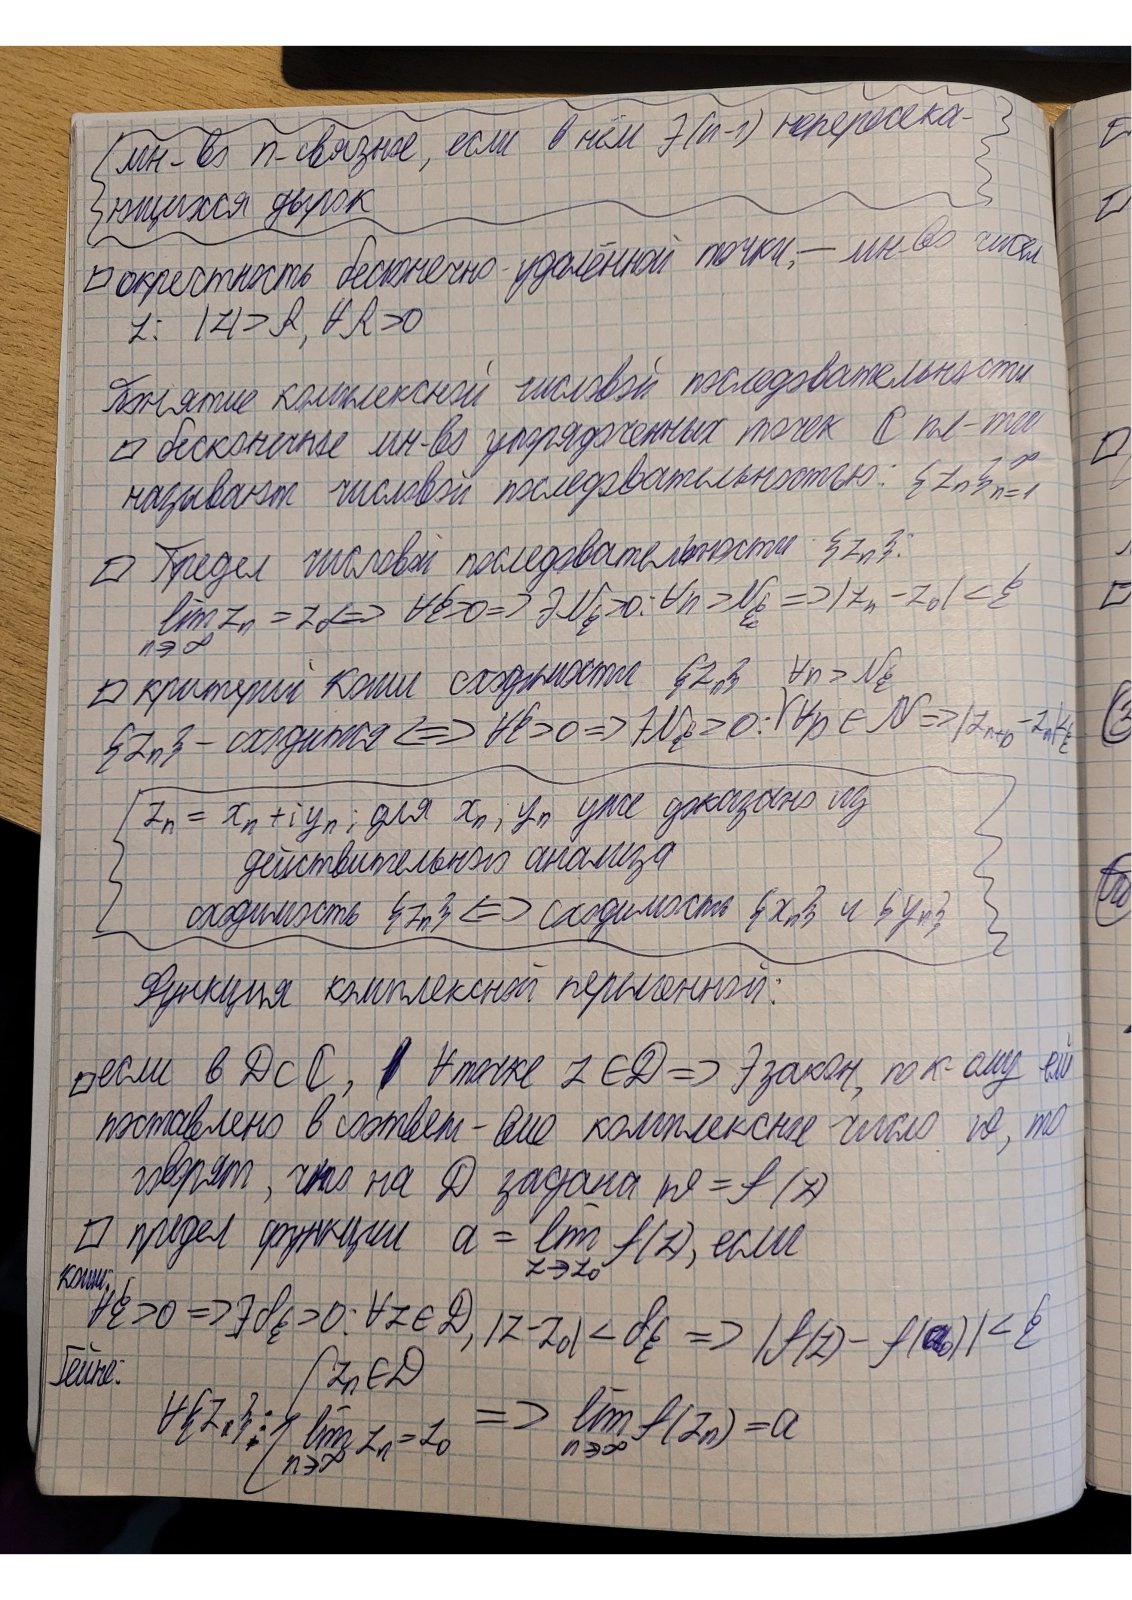 мн-во n-связное, если в нём ∃(n-1) непересека-
ющихся дырок
□ окрестность бесконечно-удалённой точки, — мн-во чисел
z: |z|>R, ∀R>0
Понятие комплексной числовой последовательности
□ бесконечное мн-во упорядоченных точек ℂ пл-ти
называют числовой последовательностью: {z_n}_{n=1}^∞
□ Предел числовой последовательности {z_n}:
lim_{n→∞} z_n = z_0 <=> ∀ξ>0 => ∃N_ξ>0: ∀n>N_ξ => |z_n - z_0| < ξ
□ критерий Коши сходимости {z_n} ∀n > N_ξ
{z_n} - сходится <=> ∀ξ>0 => ∃N_ξ>0: ∀p∈N => |z_{n+p} - z_n|<ξ
z_n = x_n + iy_n; для x_n, y_n уже доказано из
действительного анализа
сходимость {z_n} <=> сходимость {x_n} и {y_n}
Функция комплексной переменной:
□ если в D⊂ℂ, ∀ точке z∈D => ∃ закон, по к-ому ей
поставлено в соответ-вие комплексное число w, то
говорят, что на D задана w = f(z)
□ предел функции a = lim_{z→z_0} f(z), если
Коши:
∀ξ>0 => ∃δ_ξ>0: ∀z∈D, |z-z_0| < δ_ξ => |f(z) - f(a)| < ξ
Гейне:
∀{z_n}: { z_n∈D
lim_{n→∞} z_n = z_0 => lim_{n→∞} f(z_n) = a